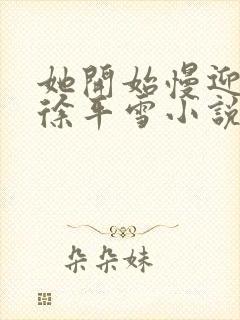 她開始慢迎
徐平雪小說
朵朵妹